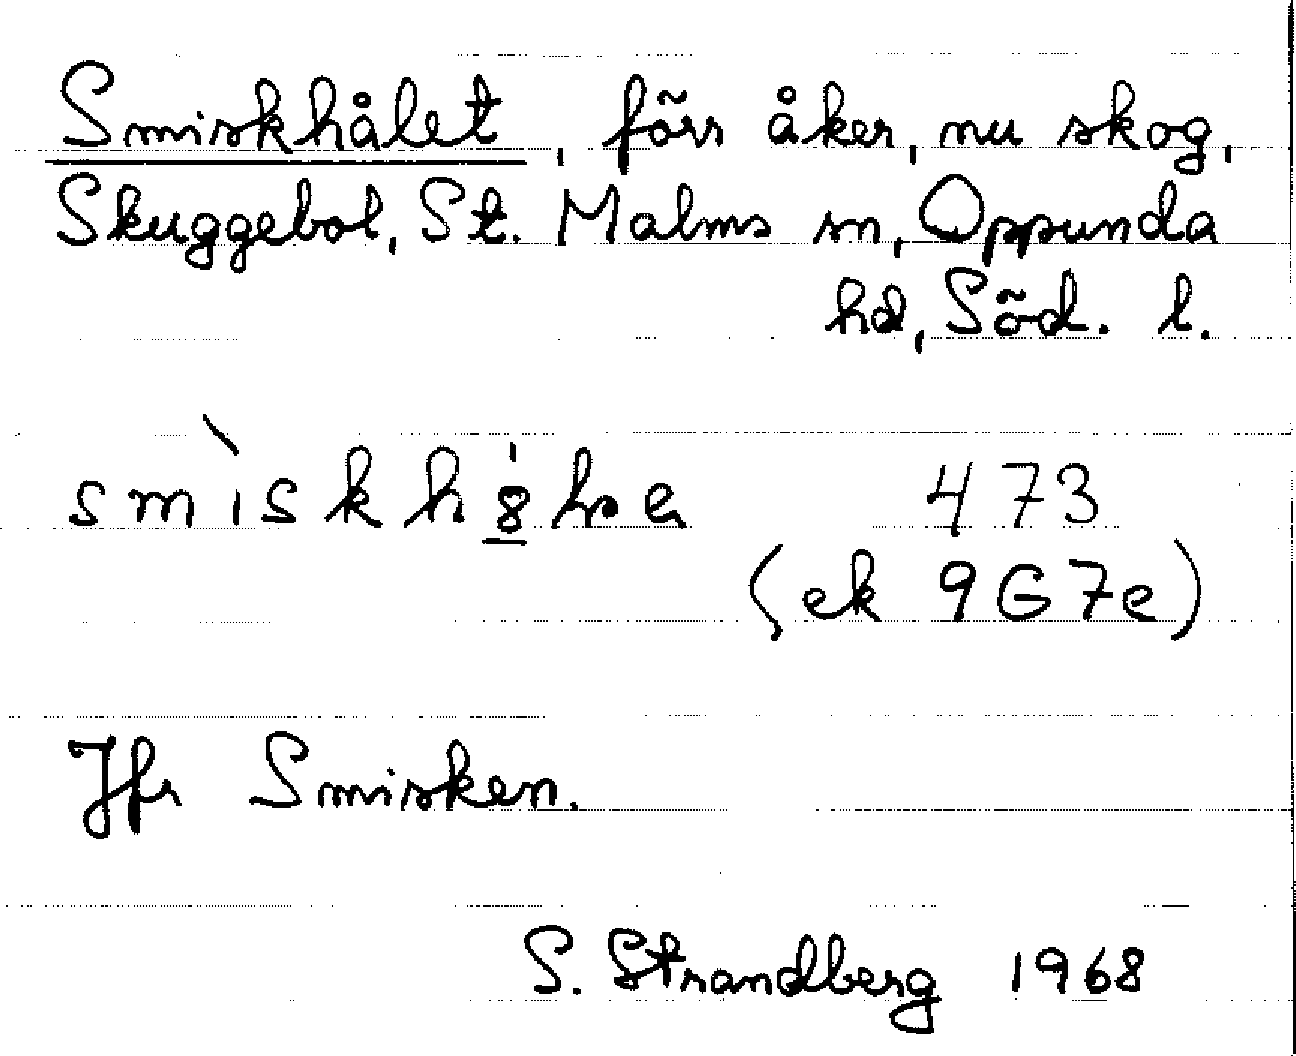 Smiskhålet, förr åker, nu skog,
Skuggebol, St. Malms sn, Oppunda
hd, Söd. l.
473
(ek 9G7e)
Jfr Smisken.
S. Strandberg 1968